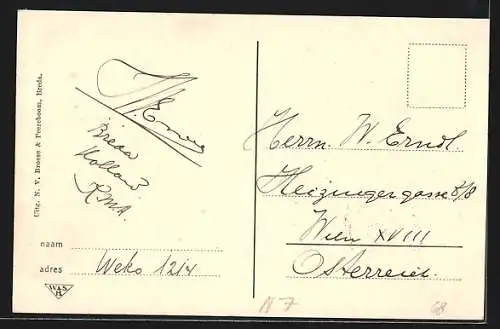 Uitg. N. V. Broese & Peereboom, Breda.
Breda
Holland
K.M.A.
naam
adres Weko 1214
W&S
H
Herrn. W. Erndl.
Heizingergasse 8/8
Wien XVIII
Österreich.
H 7
68